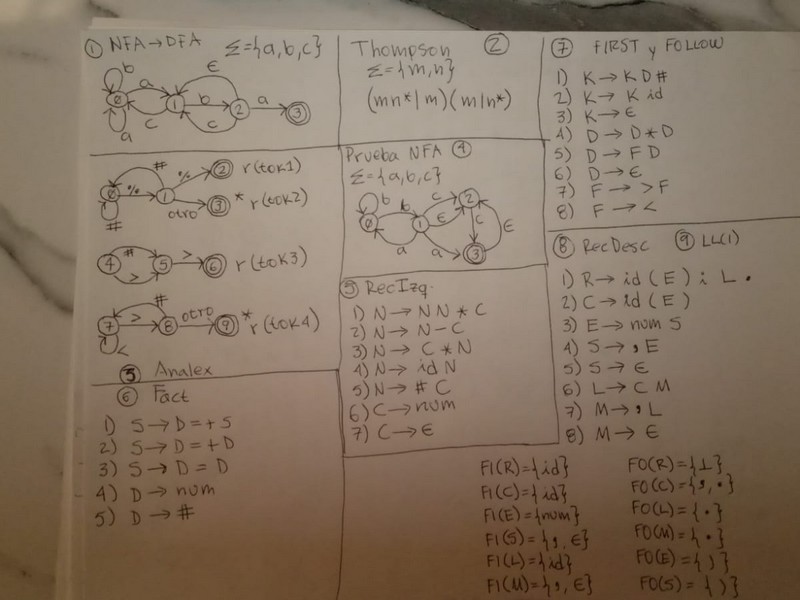 ① NFA→DFA Σ={a,b,c}
b
a
ϵ
0
1
b
2
a
3
c
c
a
Thompson ②
Σ={m,n}
(mn*|m)(m|n*)
#
%
2 r(tok1)
0
%
1
otro
3 * r(tok2)
#
4
#
5
>
6 r(tok3)
>
#
7
>
8
otro
9 * r(tok4)
<
③ Analex
Prueba NFA ④
Σ={a,b,c}
b
b
c
2
0
1
ϵ
c
ϵ
a
a
3
⑤ RecIzq.
1) N → N N * C
2) N → N - C
3) N → C * N
4) N → id N
5) N → # C
6) C → num
7) C → ϵ
⑥ Fact
1) S → D = + S
2) S → D = + D
3) S → D = D
4) D → num
5) D → #
⑦ FIRST y FOLLOW
1) K → K D #
2) K → K id
3) K → ϵ
4) D → D * D
5) D → F D
6) D → ϵ
7) F → > F
8) F → <
⑧ RecDesc ⑨ LL(1)
1) R → id ( E ) ; L .
2) C → id ( E )
3) E → num S
4) S → , E
5) S → ϵ
6) L → C M
7) M → , L
8) M → ϵ
FI(R)={id} FO(R)={⊥}
FI(C)={id} FO(C)={,, .}
FI(E)={num} FO(L)={.}
FI(S)={,, ϵ} FO(M)={.}
FI(L)={id} FO(E)={)}
FI(M)={,, ϵ} FO(S)={)}